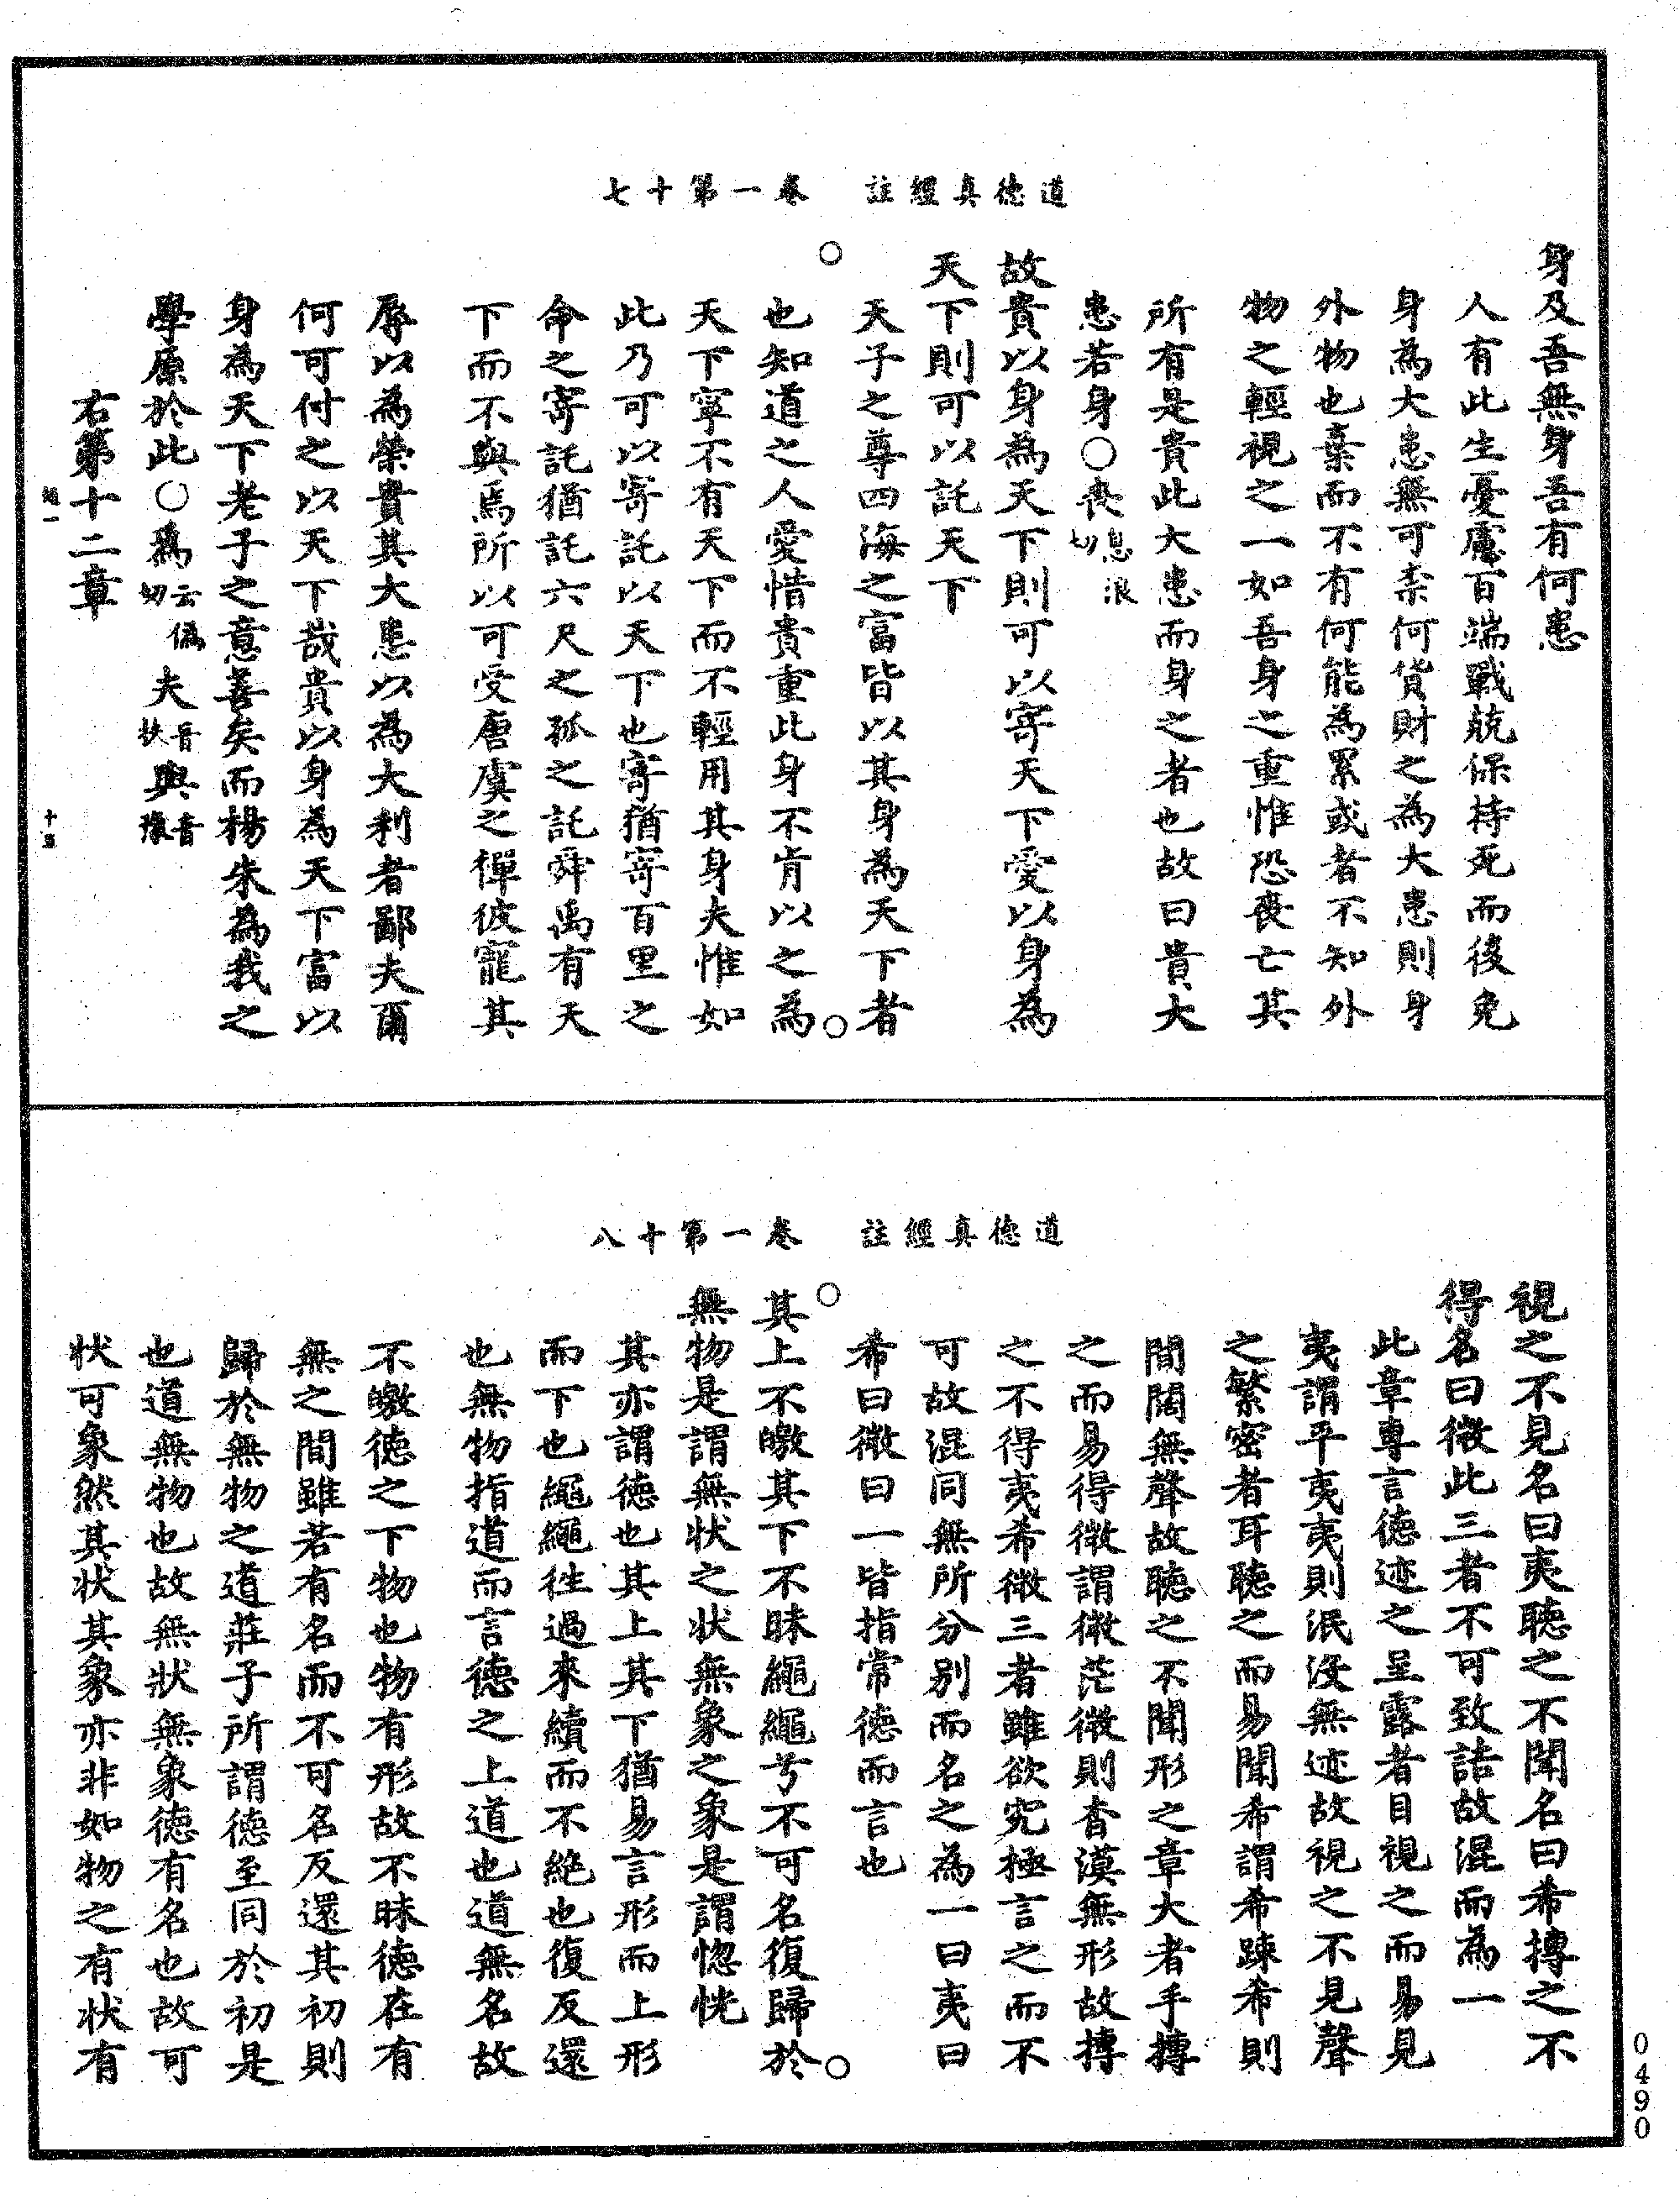 道德真經註 卷一第十七
身及吾無身吾有何患
人有此生憂慮百端戰兢保持死而後免
身為大患無可柰何貨財之為大患則身
外物也棄而不有何能為累或者不知外
物之輕視之一如吾身之重惟恐喪亡其
所有是貴此大患而身之者也故曰貴大
患若身○喪息浪切
故貴以身為天下則可以寄天下愛以身為
天下則可以託天下
天子之尊四海之富皆以其身為天下者
也知道之人愛惜貴重此身不肯以之為
天下寧不有天下而不輕用其身夫惟如
此乃可以寄託以天下也寄猶寄百里之
命之寄託猶託六尺之孤之託舜禹有天
下而不與焉所以可受唐虞之禪彼寵其
辱以為榮貴其大患以為大利者鄙夫爾
何可付之以天下哉貴以身為天下富以
身為天下老子之意善矣而楊朱為我之
學原於此○為云偽切夫音扶與音豫
右第十二章
道德真經註 卷一第十八
視之不見名曰夷聽之不聞名曰希摶之不
得名曰微此三者不可致詰故混而為一
此章專言德迹之呈露者目視之而易見
夷謂平夷夷則泯沒無迹故視之不見聲
之繁密者耳聽之而易聞希謂希踈希則
間闊無聲故聽之不聞形之章大者手摶
之而易得微謂微茫微則杳漠無形故摶
之不得夷希微三者雖欲究極言之而不
可故混同無所分別而名之為一曰夷曰
希曰微曰一皆指常德而言也
其上不皦其下不昧繩繩兮不可名復歸於
無物是謂無狀之狀無象之象是謂惚恍
其亦謂德也其上其下猶易言形而上形
而下也繩繩往過來續而不絕也復反還
也無物指道而言德之上道也道無名故
不皦德之下物也物有形故不昧德在有
無之間雖若有名而不可名反還其初則
歸於無物之道莊子所謂德至同於初是
也道無物也故無狀無象德有名也故可
狀可象然其狀其象亦非如物之有狀有
0490